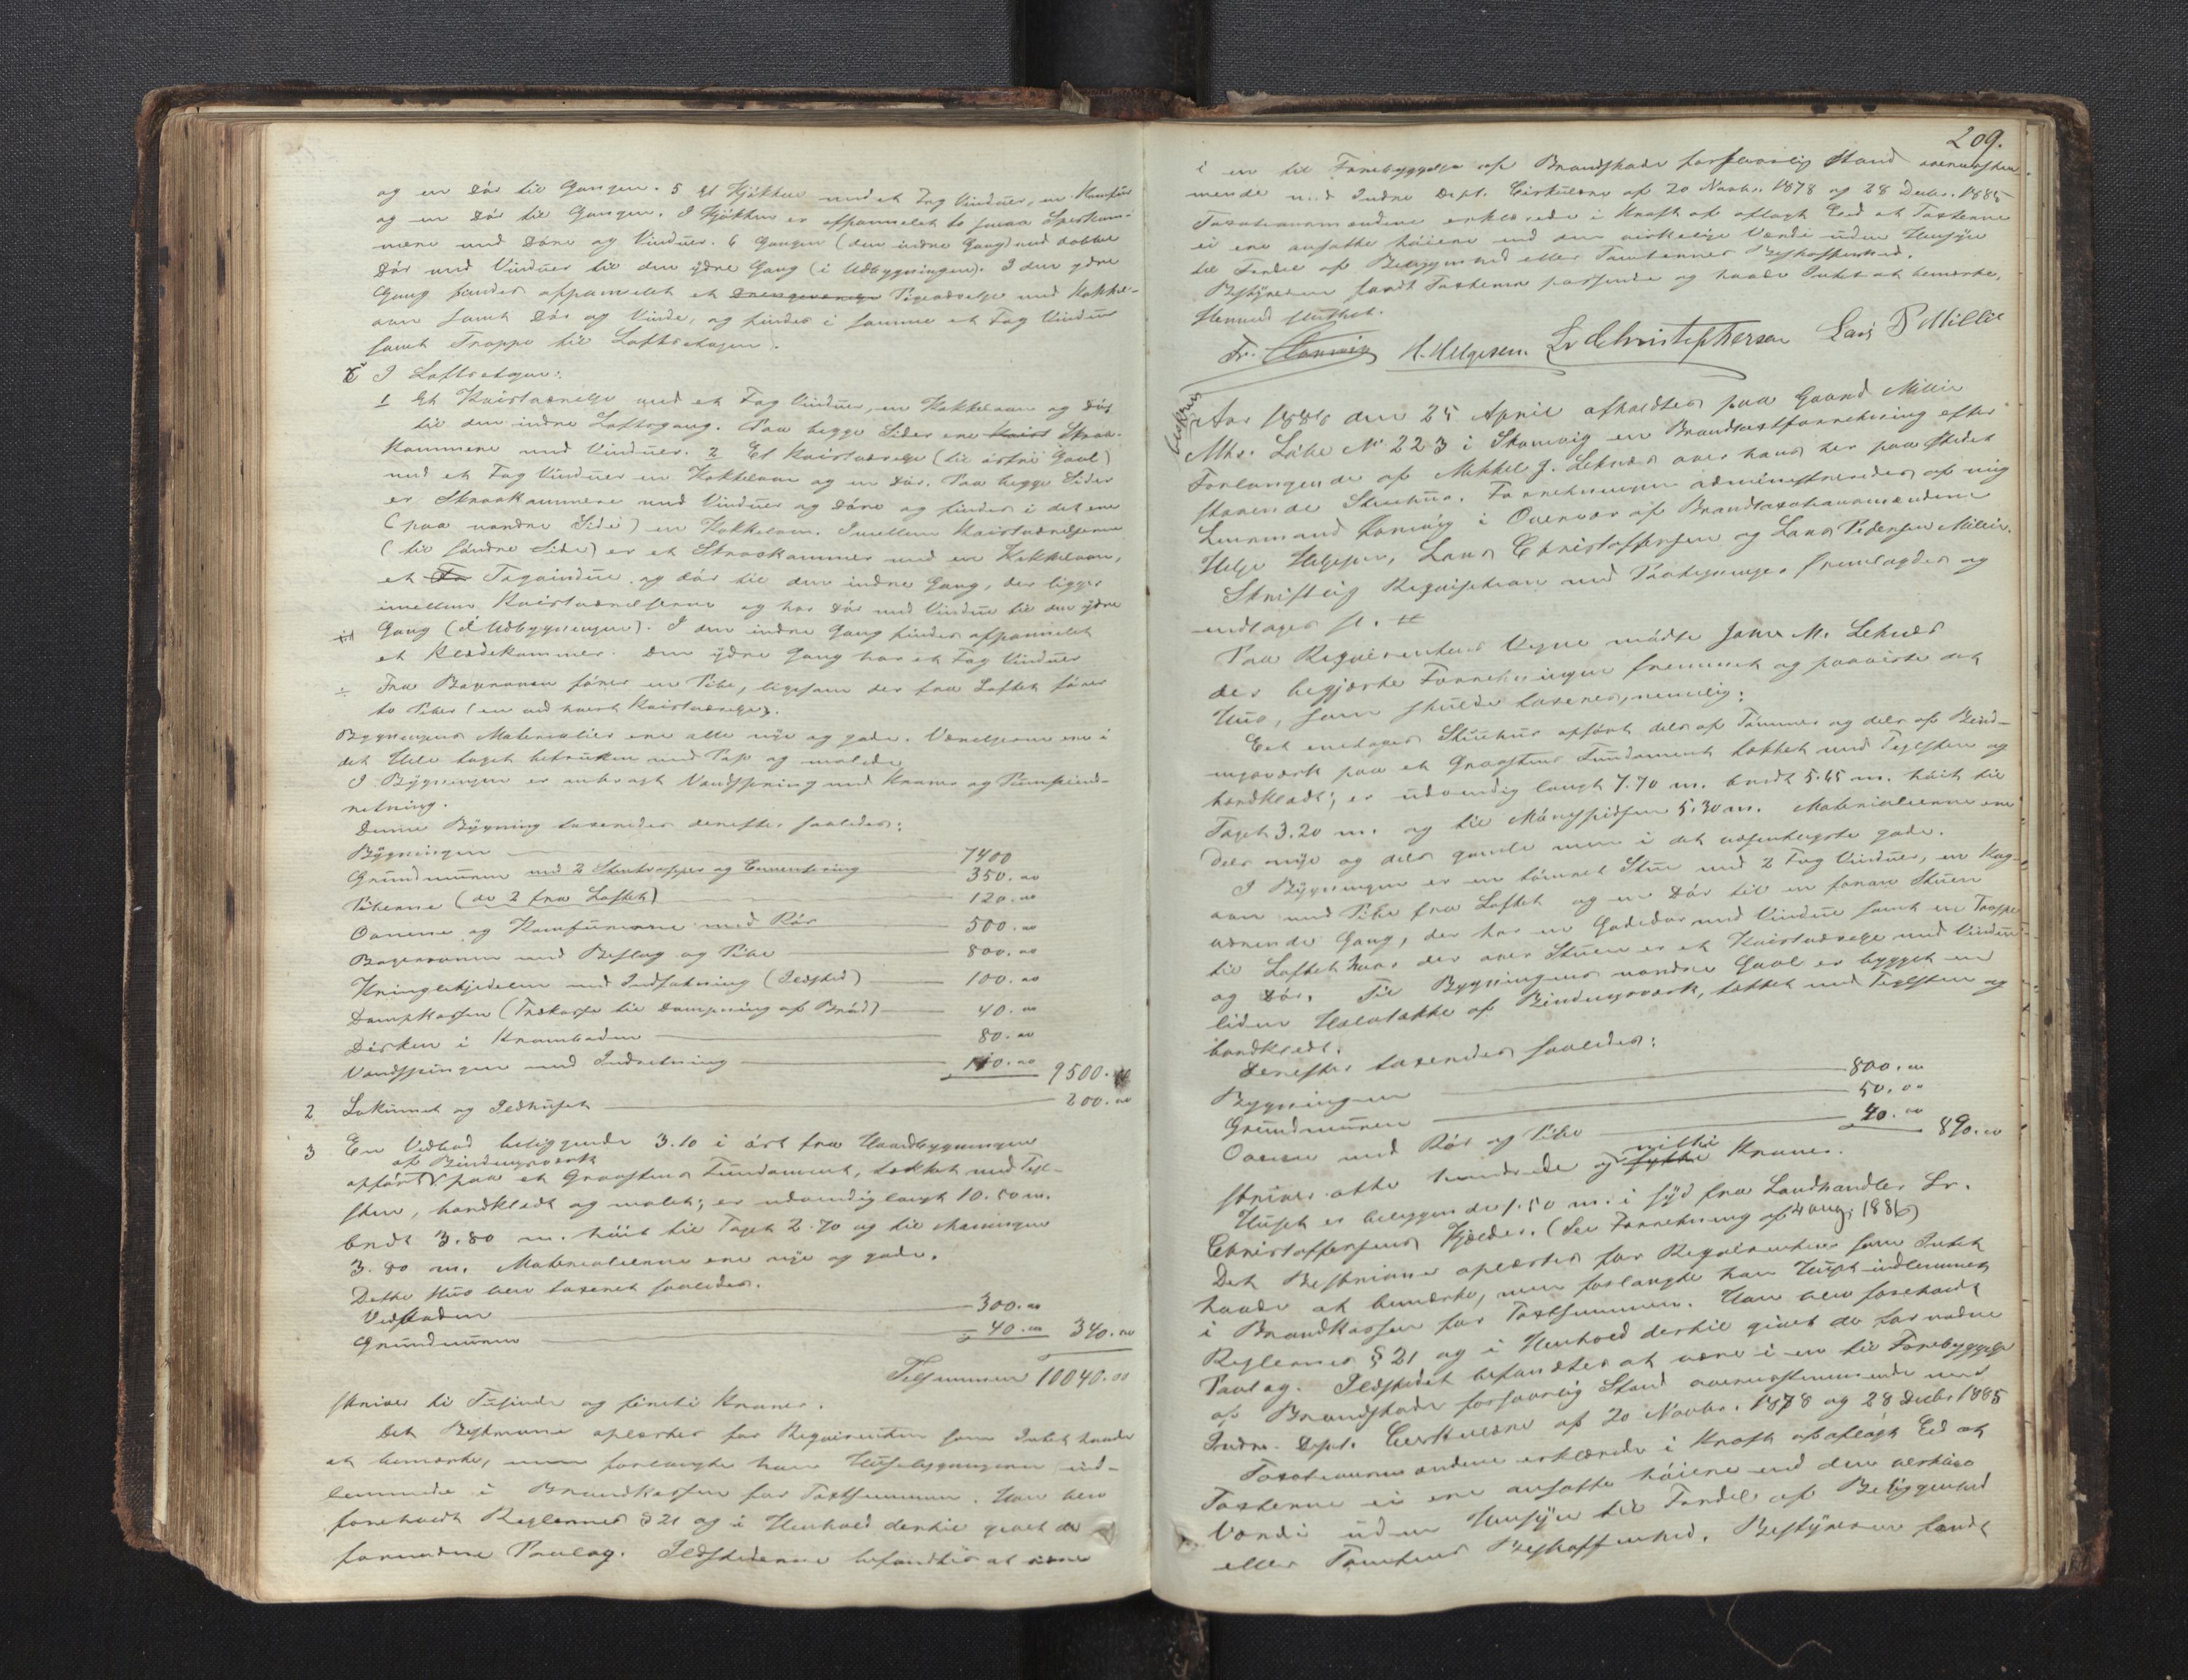 og en Dör til Gangen. 5 Et Kjökken med et Fag Vinduer, en Komfur
og en Dör til Gangen. I Kjökken er afpannelet to smaa Spiskam-
mere med Döre og Vinduer. 6 Gangen (den indre Gang) med dobbel
Dör med Vinduer til den ydre Gang (i Udbygningen). I den ydre
Gang findes afpannelet et Drengeværelse Pigeværelse med Kakkel-
ovn samt Dör og Vindu, og findes i samme et Fag Vinduer
samt Trappe til Loftsetagen.
I Loftsetagen:
1 Et Kvistværelse med et Fag Vinduer, en Kakkelovn og Dör
til den indre Loftsgang. Paa begge Sider ere Kvist Skraa-
kammere med Vinduer. 2 Et Kvistværelse (til östre Gavl)
med et Fag Vinduer en Kakkelovn og en Dör. Paa begge Sider
er Skraakammere med Vinduer og Döre og findes i det ene
(paa nordre Side) en Kakkelovn. Imellem Kvistværelserne
(til söndre Side) er et Skraakammer med en Kakkelovn,
et Fa Tagvindue og Dör til den indre Gang, der ligger
imellem Kvistværelserne og har Dör med Vindue til den ydre
Gang (i Udbygningen). I den indre Gang findes afpannelet
et Klædekammer. Den ydre Gang har et Fag Vinduer
Fra Bagerovnen förer en Pibe, ligesom der fra Loftet förer
to Piber (en ved hvert Kvistværelse).
Bygningens Materialier ere alle nye og gode. Værelserne ere i
det Hele taget betrukken med Pap og malede
I Bygningen er anbragt Vandspring med Kraner og Pumpeind-
retning.
Denne Bygning taxeredes derefter saaledes:
Bygningen 7400
Grundmuren med 2 Stentrapper og Cementering 350.00
Piberne (de 2 fra Loftet) 120.00
Ovnene og Komfurerne med Rör 500.00
Bagerovnen med Beslag og Pibe 800.00
Kringlekjedelen med Indfatning (Ildsted) 100.00
Dampkassen (Trækasse til Dampning af Bröd) 40.00
Disken i Kramboden 80.00
Vandspringen med Indretning 110.00 9500.00
2 Lokumet og Ildhuset 200.00
3 En Vedbod beliggende 3.10 i öst fra Hovedbygningen
af Bindingsværk
opfört paa et Graastens Fundament, tækket med Tegl-
sten, bordklædt og malet; er udvendig langt 10.50 m.
bredt 3.80 m. höit til Taget 2.70 og til Mæningen
3.80 m. Materialierne ere nye og gode.
Dette Hus blev taxeret saaledes.
Vedboden 300.00
Grundmuren 40.00 340.00
Tilsammen 10040.00
skriver ti Tusinde og fireti Kroner.
Det Beskrevne oplæstes for Requirenten som Intet havde
at bemærke, men forlangte han Husebygningerne ind-
lemmede i Brandkassen for Taxtsummen. Han blev
foreholdt Reglernes § 21 og i Henhold dertil givet de
fornödne Paalæg. Ildstederne befandtes at være
209.
i en til Forebyggelse af Brandskade forsvarlig Stand overensstem-
mende med Indre Dept. Cirkulære af 20 Novbr. 1878 og 28 Decbr. 1885
Taxationsmændene erklærede i Kraft af aflagt Eed at Taxterne
ei ere ansatte höiere end den virkelige Værdi uden Hensyn
til Fordel af Beliggenhed eller Tomternes Beskaffenhed.
Bestyreren fandt Taxterne passende og havde Intet at bemærke.
Hermed sluttet.
H. Helgesen Lr Christophersen Lars P Millie
Aar 1886 den 25 April afholdtes paa Gaard Millie
Mtr. Löbe No 223 i Skonvig en Brandtaxtforretning efter
Forlangende af Mekkel J. Leknes over hans her paa Stedet
staaende Stuehus. Forretningen administreredes af mig
Lensmand i Overvær af Brandtaxationsmændene
Helge Helgesen, Laus Christoffersen og Lars Pedersen Millie.
Skriftlig Requisition med Paategninger fremlagdes og
indtages s. #
Paa Requirentens Vegne mödte Johan M. Leknes
der begjærte Forretningen fremmet og paaviste det
Hus, som skulde taxeres, nemlig:
Eet enetages Stuehus opfört dels af Tömmer og dels af Bind-
ingsværk paa et Graastens Fundament tækket med Teglsten og
bordklædt; er udvendig langt 7.70 m. bredt 5.45 m. höit til
Taget 3.20 m. og til Mönespidsen 5.30 m. Materialierne ere
dels nye og dels gamle men i det væsentligste gode.
I Bygningen er en tömret Stue med 2 Fag Vinduer, en Kog-
ovn med Pibe fra Loftet og en Dör til en foran Stuen
værende Gang, der har en Gadedör med Vindue samt en Trappe
til Loftet hvor der over Stuen er et Kvistværelse med Vindue
og Dör. Til Bygningens nordre Gavl er bygget en
liden Halvtække af Bindingsværk, tækket med Teglsten og
bordklædt.
Derefter taxeredes saaledes:
Bygningen 800.00
Grundmuren 50.00
Ovnen med Rör og Pibe 40.00 890.00
nitti
skriver otte hundrede og fytti Kroner.
Huset er beliggende 1.50 m. i syd fra Landhandler Lr.
Christoffersens Kjælder. (See Forretning af 4 aug. 1886)
Det Beskrevne oplæstes for Requirenten som Intet
havde at bemærke, men forlangte han Huset indlemmet
i Brandkassen for Taxtsummen. Han blev foreholdt
Reglernes § 21 og i Henhold dertil givet de fornødne
Paalæg. Ildstedet befandtes at være i en til Forebyggelse
af Brandskade forsvarlig Stand overensstemmende med
Indre Dept. Cirkulære af 20 Novbr. 1878 og 28 Decbr 1885
Taxationsmændene erklærede i Kraft af aflagt Eed at
Taxterne ei ere ansatte höiere end den virkelige
Værdi uden Hensyn til Fordel af Beliggenhed
eller Tomtens Beskaffenhed. Bestyreren fandt